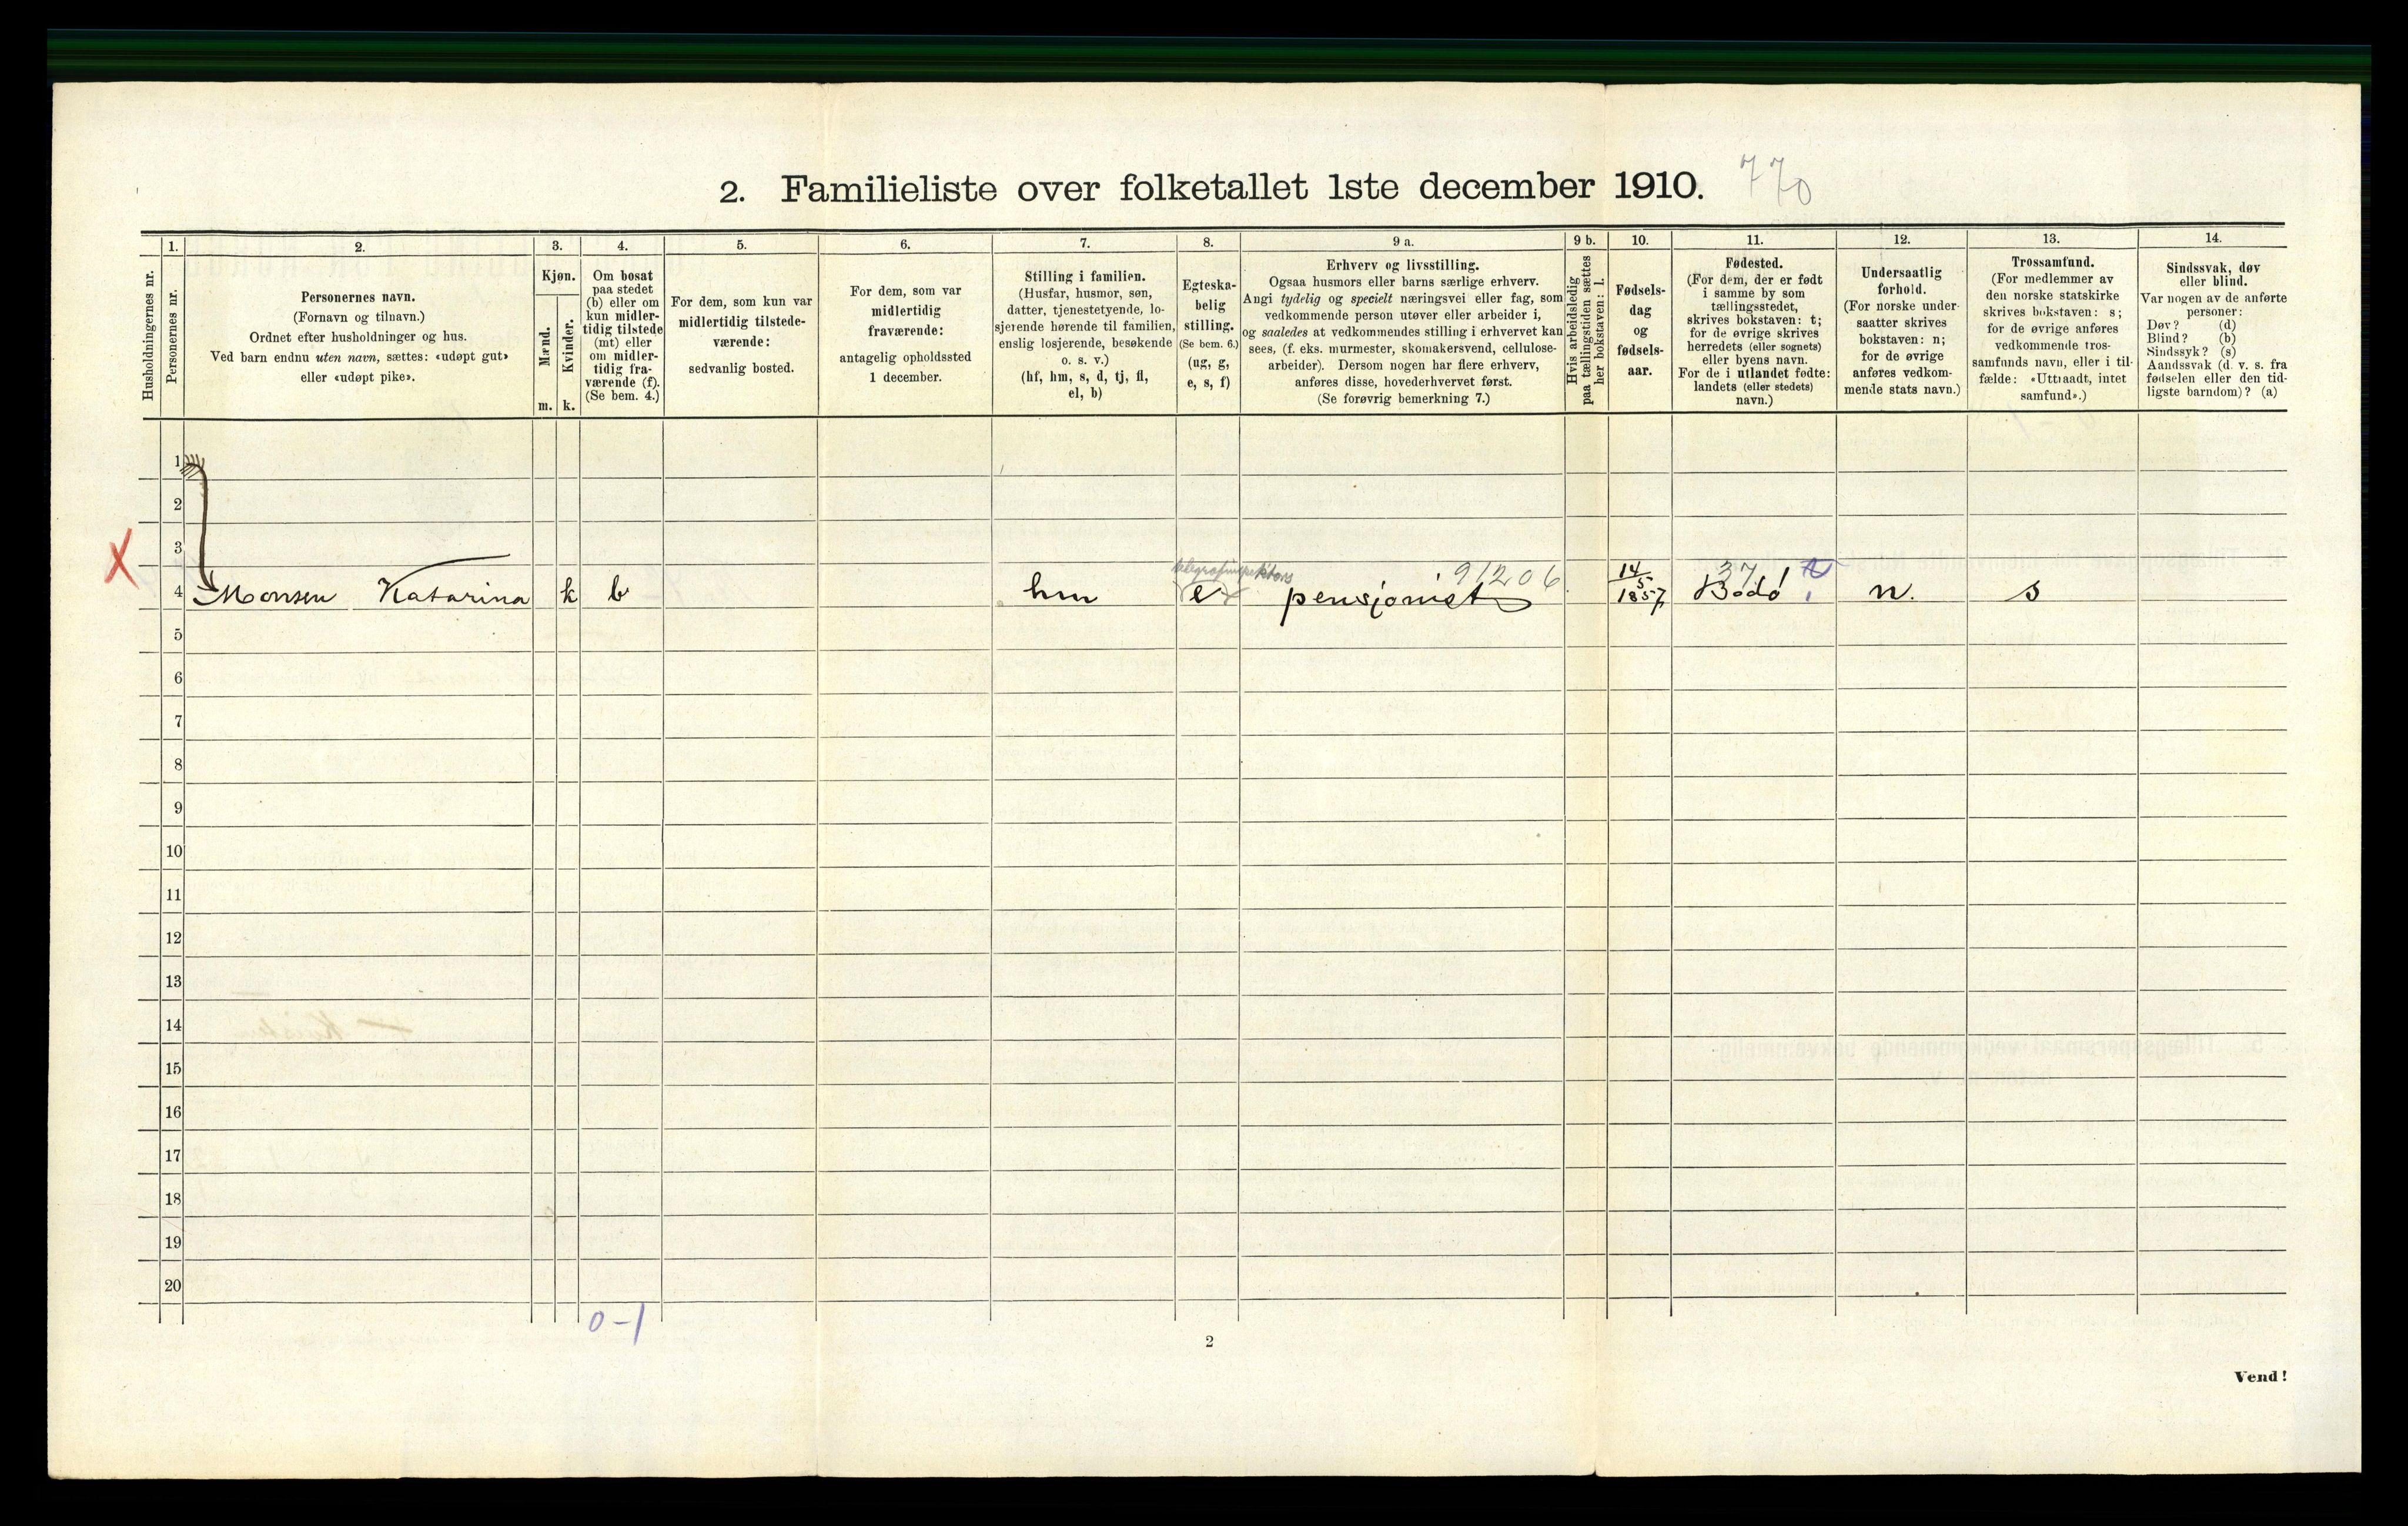 2. Familieliste over folketallet 1ste december 1910.
770
Husholdningernes nr.
1.
Personernes nr.
2.
Personernes navn.
(Fornavn og tilnavn.)
Ordnet efter husholdninger og hus.
Ved barn endnu uten navn, sættes: «udøpt gut»
eller «udøpt pike».
3.
Kjøn.
Mænd.
Kvinder.
m. k.
4.
Om bosat
paa stedet
(b) eller om
kun midler-
tidig tilstede
(mt) eller
om midler-
tidig fra-
værende (f).
(Se bem. 4.)
5.
For dem, som kun var
midlertidig tilstede-
værende:
sedvanlig bosted.
6.
For dem, som var
midlertidig
fraværende:
antagelig opholdssted
1 december.
7.
Stilling i familien.
(Husfar, husmor, søn,
datter, tjenestetyende, lo-
sjerende hørende til familien,
enslig losjerende, besøkende
o. s. v.)
(hf, hm, s, d, tj, fl,
el, b)
8.
Egteska-
belig
stilling.
(Se bem. 6.)
(ug, g,
e, s, f)
9 a.
Erhverv og livsstilling.
Ogsaa husmors eller barns særlige erhverv.
Angi tydelig og specielt næringsvei eller fag, som
vedkommende person utøver eller arbeider i,
og saaledes at vedkommendes stilling i erhvervet kan
sees, (f. eks. murmester, skomakersvend, cellulose-
arbeider). Dersom nogen har flere erhverv,
anføres disse, hovederhvervet først.
(Se forøvrig bemerkning 7.)
9 b.
Hvis arbeidsledig
paa tællingstiden sættes
her bokstaven: l.
10.
Fødsels-
dag
og
fødsels-
aar.
11.
Fødested.
(For dem, der er født
i samme by som
tællingsstedet,
skrives bokstaven: t;
for de øvrige skrives
herredets (eller sognets)
eller byens navn.
For de i utlandet fødte:
landets (eller stedets)
navn.)
12.
Undersaatlig
forhold.
(For norske under-
saatter skrives
bokstaven: n;
for de øvrige
anføres vedkom-
mende stats navn.)
13.
Trossamfund.
(For medlemmer av
den norske statskirke
skrives bokstaven: s;
for de øvrige anføres
vedkommende tros-
samfunds navn, eller i til-
fælde: «Uttraadt, intet
samfund».)
14.
Sindssvak, døv
eller blind.
Var nogen av de anførte
personer:
Døv? (d)
Blind? (b)
Sindssyk? (s)
Aandssvak (d. v. s. fra
fødselen eller den tid-
ligste barndom)? (a)
1
2
3
X
telegrafinspektørs 91206 37
4 Monsen Katarina k b hm e pensjonist 14/5 1857 Bodø n. s
5
6
7
8
9
10
11
12
13
14
15
16
17
18
19
20
0-1
2
Vend!